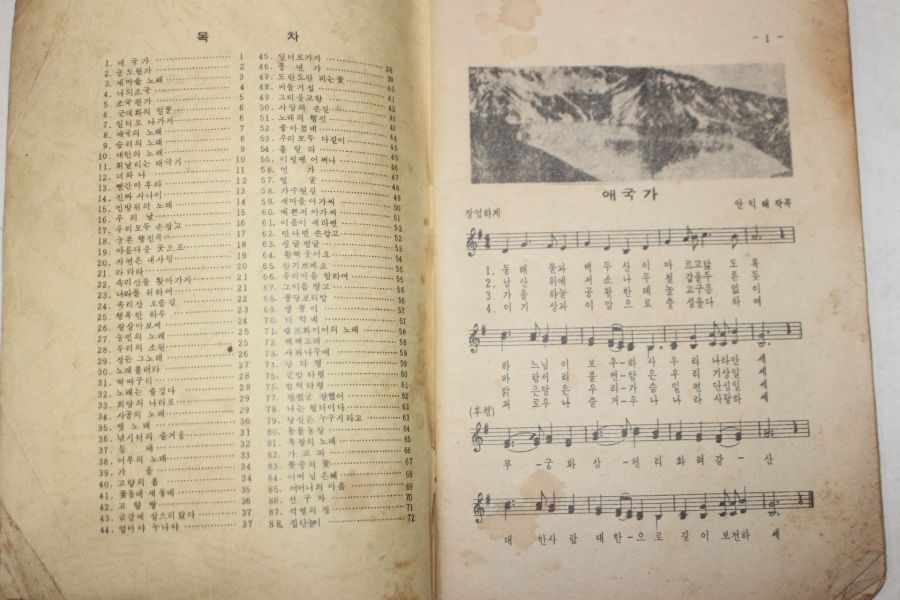 목 차
1. 애국가 1
2. 농도원가 2
3. 새마을 노래 3
4. 나의조국 4
5. 조국찬가 5
6. 근대화의 일꾼 6
7. 일터로 나가자 6
8. 애국의 노래 7
9. 승리의 노래 8
10. 대한의 노래 9
11. 휘날리는 태극기 10
12. 너와 나 11
13. 빨간마후라 12
14. 진짜 사나이 13
15. 민방위의 노래 14
16. 우리 날 15
17. 우리모두 손잡고 16
18. 농촌 행진곡 17
19. 아름다운 곳으로 18
20. 자연은 내사랑 19
21. 라라라 20
22. 속리산을 찾아가자 21
23. 나라를 위하여 21
24. 속리산 오솔길 22
25. 행복한 하루 23
26. 잘살아보세 24
27. 농민의 노래 25
28. 우리의 소원
29. 정든 그노래
30. 노래불러라
31. 딱따구리
32. 노래는 즐겁다 28
33. 희망의 나라로 29
34. 사공의 노래 29
35. 뱃노래 30
36. 낚시터의 즐거움 31
37. 등대 32
38. 어부의 노래 33
39. 가을 34
40. 고향의 봄 34
41. 꽃동네 새동네 35
42. 고향땅 36
43. 금강에 살으리랐다 37
44. 엄마야 누나야 37
45. 일터로가자 38
46. 풍년가 39
47. 도란도란 피는꽃 40
48. 비둘기집 41
49. 그리운고향 42
50. 사랑의 손길
51. 노래의 행진
52. 좋아졌네
53. 우리모두 다같이 44
54. 홀랄라 45
55. 이럴땐 어쩌나 46
56. 연가 46
57. 얼굴 47
58. 가수원길 48
59. 새마을아가씨 49
60. 예쁜저 아가씨 50
61. 이몸이 새라면 51
62. 만나면 손잡고 52
63. 싱글벙글 52
64. 활짝웃어요 53
65. 찬기쁘네요
66. 우리마음 합하여 54
67. 그이름 빛고
68. 퐁당보리밥 56
69.
70. 타박네 57
71. 캠프화이어의 노래 58
72. 58
73. 사과나무에 59
74. 타령
75. 타령 60
76. 범벅타령 61
77. 잘했군 잘했어 62
78. 나는 월터이다 63
79. 당신은 누구시라고 63
80. 동물농장 64
81. 목장의 노래 65
82. 가고파 66
83. 꽃중의 꽃 67
84. 어머님 은혜 68
85. 어머니의 마음 69
86. 선구자 70
87. 석별의 정 71
88. 집단놀이 72
- 1 -
애국가
장엄하게
안익태 작곡
1. 동해 물과 백두산이 마르고닳도록
2. 남산 위에 저소나무 철갑을두른듯
3. 가을 하늘 공활한데 높고구름없이
4. 이기 상과 이맘으로 충성을다하여
하느님이 보우-하사 우리 나라만세
바람서리 불변-함은 우리 기상일세
밝은달은 우리-가슴 일편 단심일세
괴로우나 즐거-우나 나라 사랑하세
(후렴)
무-궁화삼-천리화려강-산
대한사람 대한-으로 길이 보전하세